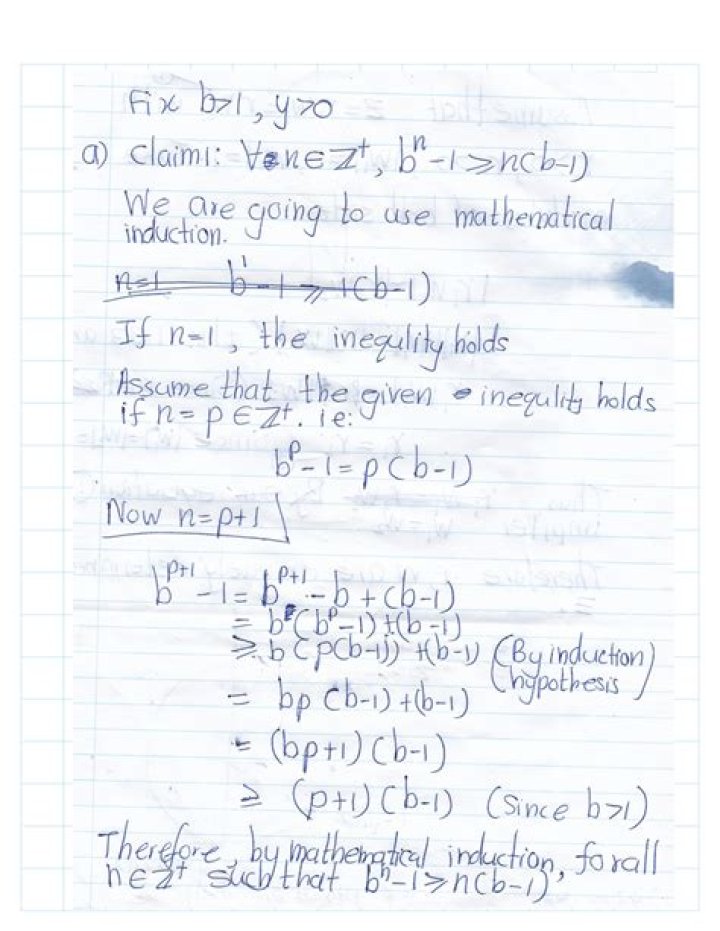 Fix b>1, y>0
a) claim1: ∀n∈Z⁺, bⁿ-1≥n(b-1)
We are going to use mathematical
induction.
n=1 b¹-1≥1(b-1)
If n=1, the inequlity holds
Assume that the given inequlity holds
if n=p∈Z⁺. ie:
bᵖ-1=p(b-1)
Now n=p+1
bᵖ⁺¹-1=bᵖ⁺¹-b+(b-1)
=b(bᵖ-1)+(b-1)
≥b(p(b-1))+(b-1) (By induction
hypothesis)
= bp(b-1)+(b-1)
= (bp+1)(b-1)
≥ (p+1)(b-1) (Since b>1)
Therefore, by mathematical induction, for all
n∈Z⁺ such that bⁿ-1≥n(b-1)